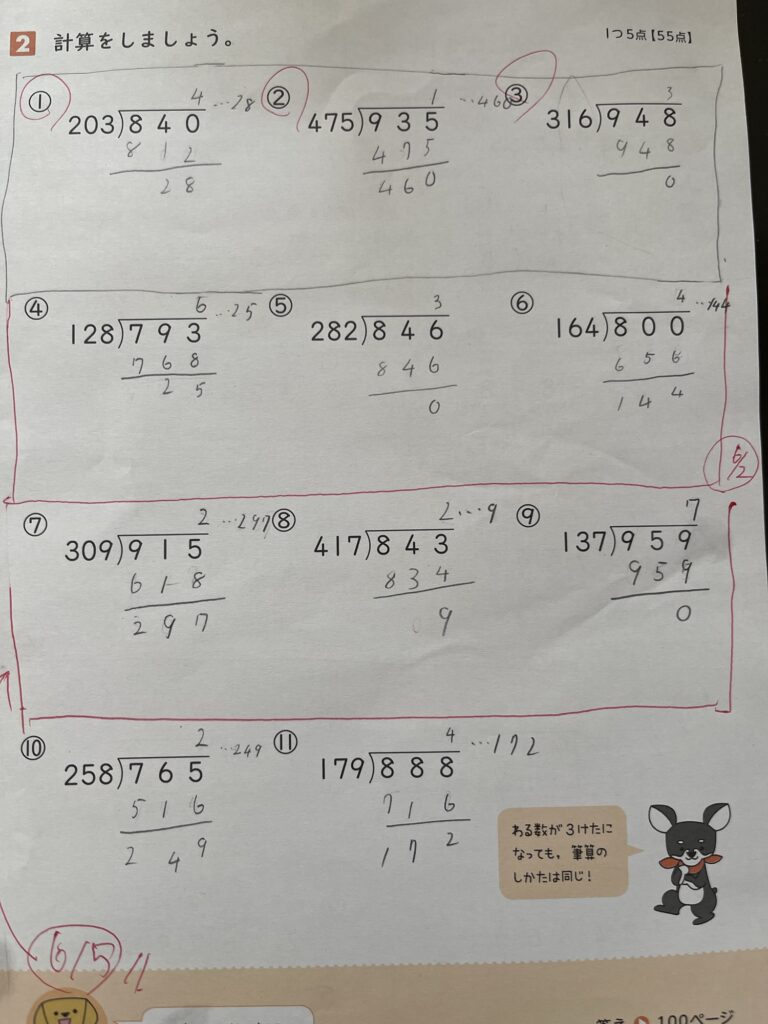 2 計算をしましょう。 1つ5点【55点】
① 4 …28 ② 1 …460 ③ 3
203)840 475)935 316)948
812 475 948
28 460 0
④ 6 …25 ⑤ 3 ⑥ 4 …144
128)793 282)846 164)800
768 846 656
25 0 144
6/2
⑦ 2 …297 ⑧ 2…9 ⑨ 7
309)915 417)843 137)959
618 834 959
297 9 0
⑩ 2 …249 ⑪ 4 …172
258)765 179)888
516 716
249 172
わる数が3けたに
なっても、筆算の
しかたは同じ!
6/5
答え 100ページ